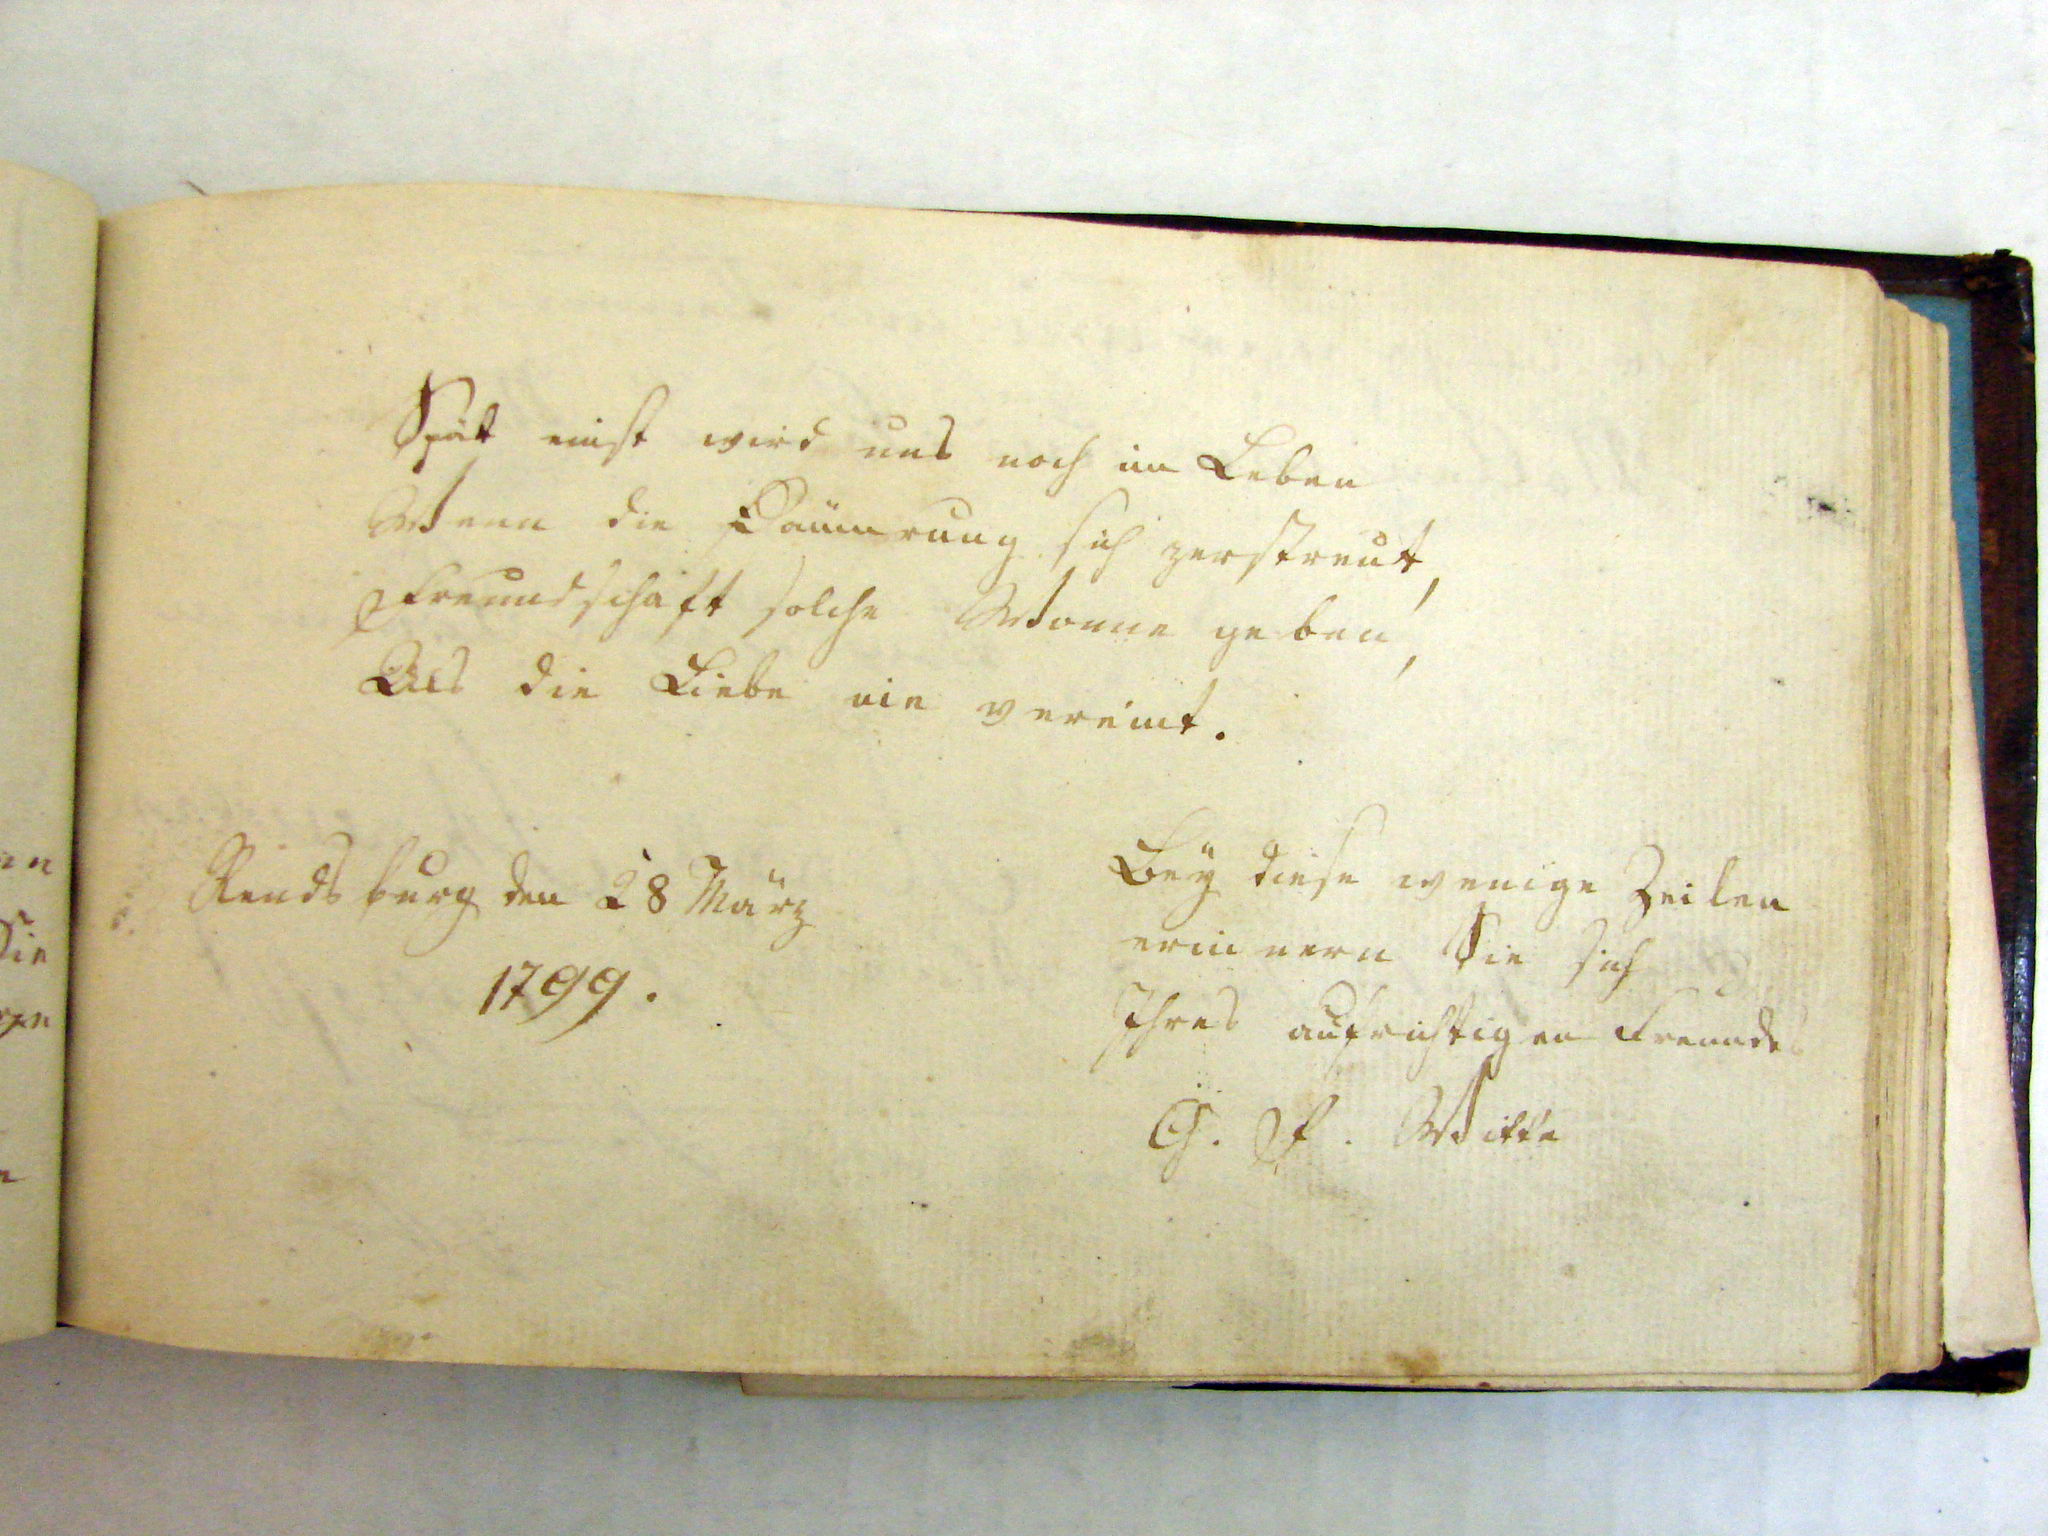 Spät einst wird uns noch im Leben
Wenn die Dämrung sich zerstreut,
Freundschaft solche Wonne geben,
Als die Liebe nie vereint.
Rendsburg den 28 März
1799.
Bey diese wenige Zeilen
erinnern Sie sich
Ihres aufrichtigen Freundes
G. F. Witte
Sie